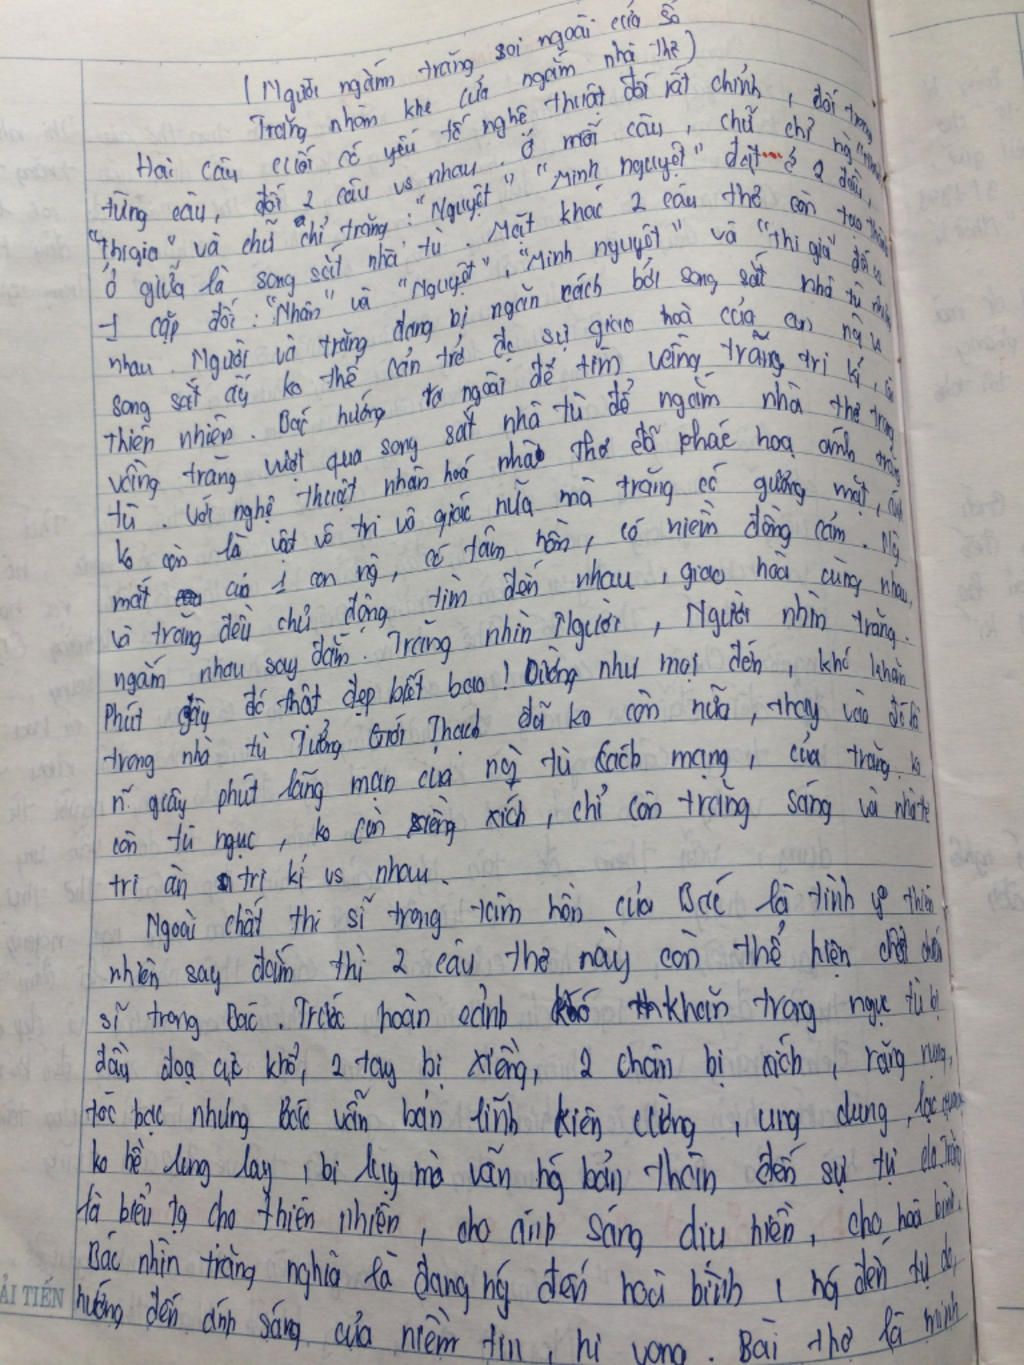 (Người ngắm trăng soi ngoài cửa sổ
Trăng nhòm khe cửa ngắm nhà thơ)
Hai câu cuối có yếu tố nghệ thuật đối rất chỉnh, đối trong
từng câu, đối 2 câu vs nhau. Ở mỗi câu, chữ chỉ ng "nhân"
"thi gia" và chữ chỉ trăng: "Nguyệt" "Minh nguyệt" đặt ở 2 đầu,
Ở giữa là song sắt nhà tù. Mặt khác 2 câu thơ còn tạo thành
1 cặp đối: "Nhân" và "Nguyệt", "Minh nguyệt" và "thi gia" đối vs
nhau. Người và trăng đang bị ngăn cách bởi song sắt nhà tù
song sắt ấy ko thể cản trở đc sự giao hoà của con ng và
thiên nhiên. Bác hướng ra ngoài để tìm vầng trăng tri kỉ, còn
vầng trăng vượt qua song sắt nhà tù để ngắm nhà thơ trong
tù. Với nghệ thuật nhân hoá nhà thơ đã phác hoạ ánh trăng
ko còn là vật vô tri vô giác nữa mà trăng có gương mặt, ánh
mắt của 1 con ng, có tâm hồn, có niềm đồng cảm. Ng
và trăng đều chủ động tìm đến nhau, giao hoà cùng nhau,
ngắm nhau say đắm. Trăng nhìn Người, Người nhìn trăng.
Phút giây đó thật đẹp biết bao! Dường như mọi đến, khó khăn
trong nhà tù Tưởng Giới Thạch đã ko còn nữa, thay vào đó là
n~ giây phút lãng mạn của ng tù cách mạng, của trăng. ko
còn tù ngục, ko còn xiềng xích, chỉ còn trăng sáng và nhà thơ
tri ân tri kỉ vs nhau.
Ngoài chất thi sĩ trong tâm hồn của Bác là tình y thiên
nhiên say đắm thì 2 câu thơ này còn thể hiện chất chiến
sĩ trong Bác. Trước hoàn cảnh khó khăn trong ngục tù bị
đầu đoạ cực khổ, 2 tay bị xiềng, 2 chân bị xích, răng rụng,
tóc bạc nhưng Bác vẫn bản lĩnh kiên cường, ung dung, lạc quan
ko hề lung lay, bi lụy mà vẫn hg bản thân đến sự tự do. Trăng
là biểu tg cho thiên nhiên, cho ánh sáng dịu hiền, cho hoà bình.
Bác nhìn trăng nghĩa là đang hg đến hoà bình, hg đến tự do,
hướng đến ánh sáng của niềm tin, hi vọng. Bài thơ là minh
ẢI TIẾN